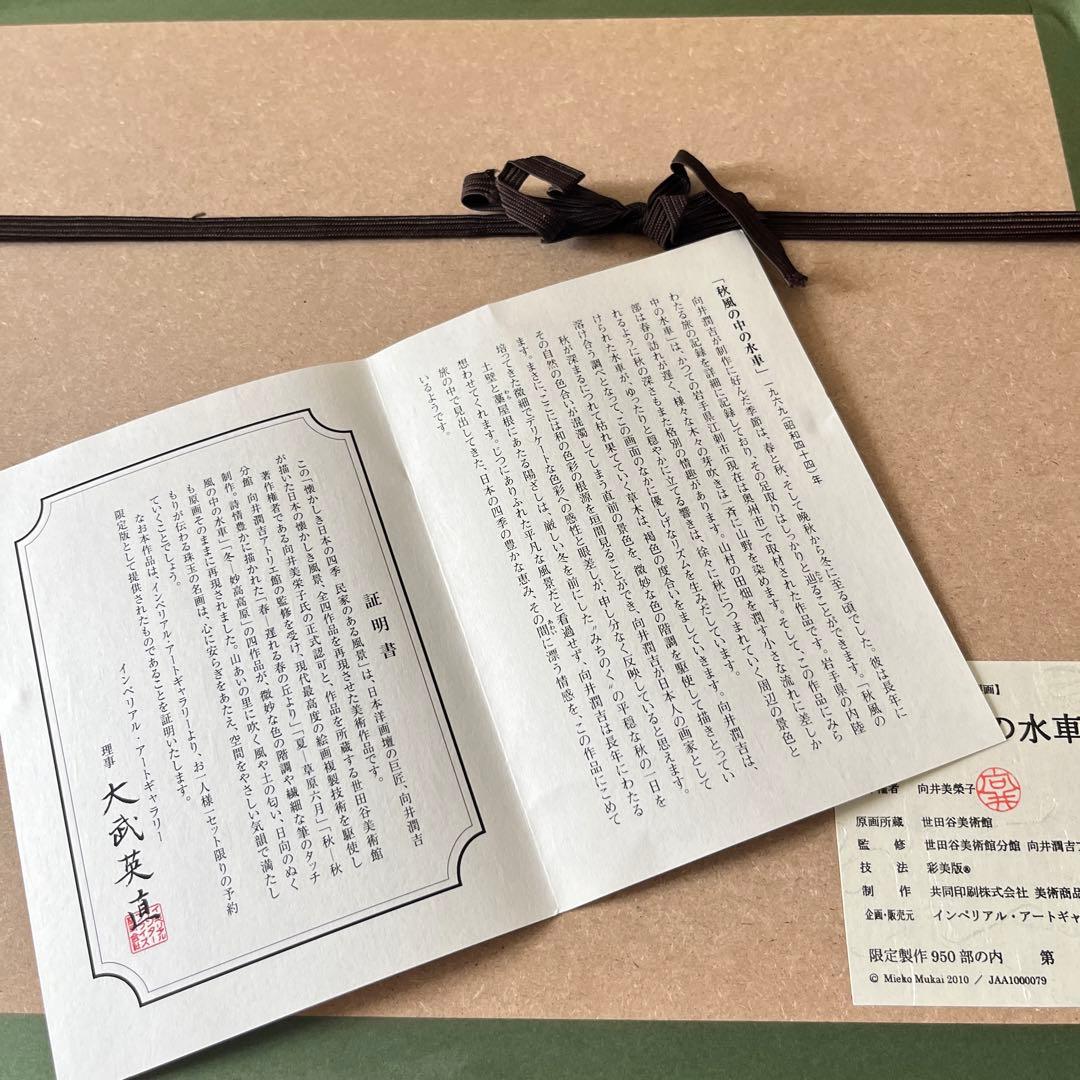 「秋風の中の水車」 一九六九(昭和四十四)年
向井潤吉が制作に好んだ季節は、春と秋、そして晩秋から冬に至る頃でした。彼は長年に
わたる旅の記録を詳細に記録しており、その足取りはしっかりと辿ることができます。「秋風の
中の水車」は、かつての岩手県江刺市(現在は奥州市)で取材された作品です。岩手県の内陸
部は春の訪れが遅く、様々な木々の芽吹きは一斉に山野を染めます。そして、この作品にみら
れるように秋の深さもまた格別の情趣があります。山村の田畑を潤す小さな流れに差しか
けられた水車が、ゆったりと穏やかに立てる響きは、徐々に秋につつまれていく周辺の景色と
溶け合う調べとなって、この画面のなかに優しげなリズムを生みだしています。
秋が深まるにつれて枯れ果てていく草木は、褐色の度合いをましていきます。向井潤吉は、
その自然の色合いが混濁してしまう直前の景色を、微妙な色の階調を駆使して描きとってい
ます。まさに、ここには和の色彩の根源を垣間見ることができ、向井潤吉が日本人の画家として
培ってきた微細でデリケートな色彩への感性と眼差しが、申し分なく反映していると思えます。
土壁と藁屋根にあたる陽ざしは、厳しい冬を前にした“みちのく”の平穏な秋の一日を
想わせてくれます。じつにありふれた平凡な風景だと看過せず、向井潤吉は長年にわたる
旅の中で見出してきた、日本の四季の豊かな恵み、その間に漂う情感を、この作品にこめて
いるようです。
証明書
この「懐かしき日本の四季 民家のある風景」は、日本洋画壇の巨匠、向井潤吉
が描いた日本の懐かしき風景、全四作品を再現させた美術作品です。
著作権者である向井美栄子氏の正式認可と、作品を所蔵する世田谷美術館
分館 向井潤吉アトリエ館の監修を受け、現代最高度の絵画複製技術を駆使し
制作。詩情豊かに描かれた「春―遅れる春の丘より」「夏―草原六月」「秋―秋
風の中の水車」「冬―妙高高原」の四作品が、微妙な色の階調や繊細な筆のタッチ
も原画そのままに再現されました。山あいの里に吹く風や土の匂い、日向のぬく
もりが伝わる珠玉の名画は、心に安らぎをあたえ、空間をやさしい気韻で満たし
ていくことでしょう。
なお本作品は、インペリアル・アートギャラリーより、お一人様一セット限りの予約
限定版として提供されたものであることを証明いたします。
インペリアル・アートギャラリー
理事 大武英直
画】
の水車
権者 向井美榮子
原画所蔵 世田谷美術館
監修 世田谷美術館分館 向井潤吉ア
技法 彩美版®
制作 共同印刷株式会社 美術商品
企画・販売元 インペリアル・アートギャ
限定製作950部の内 第
© Mieko Mukai 2010 / JAA1000079